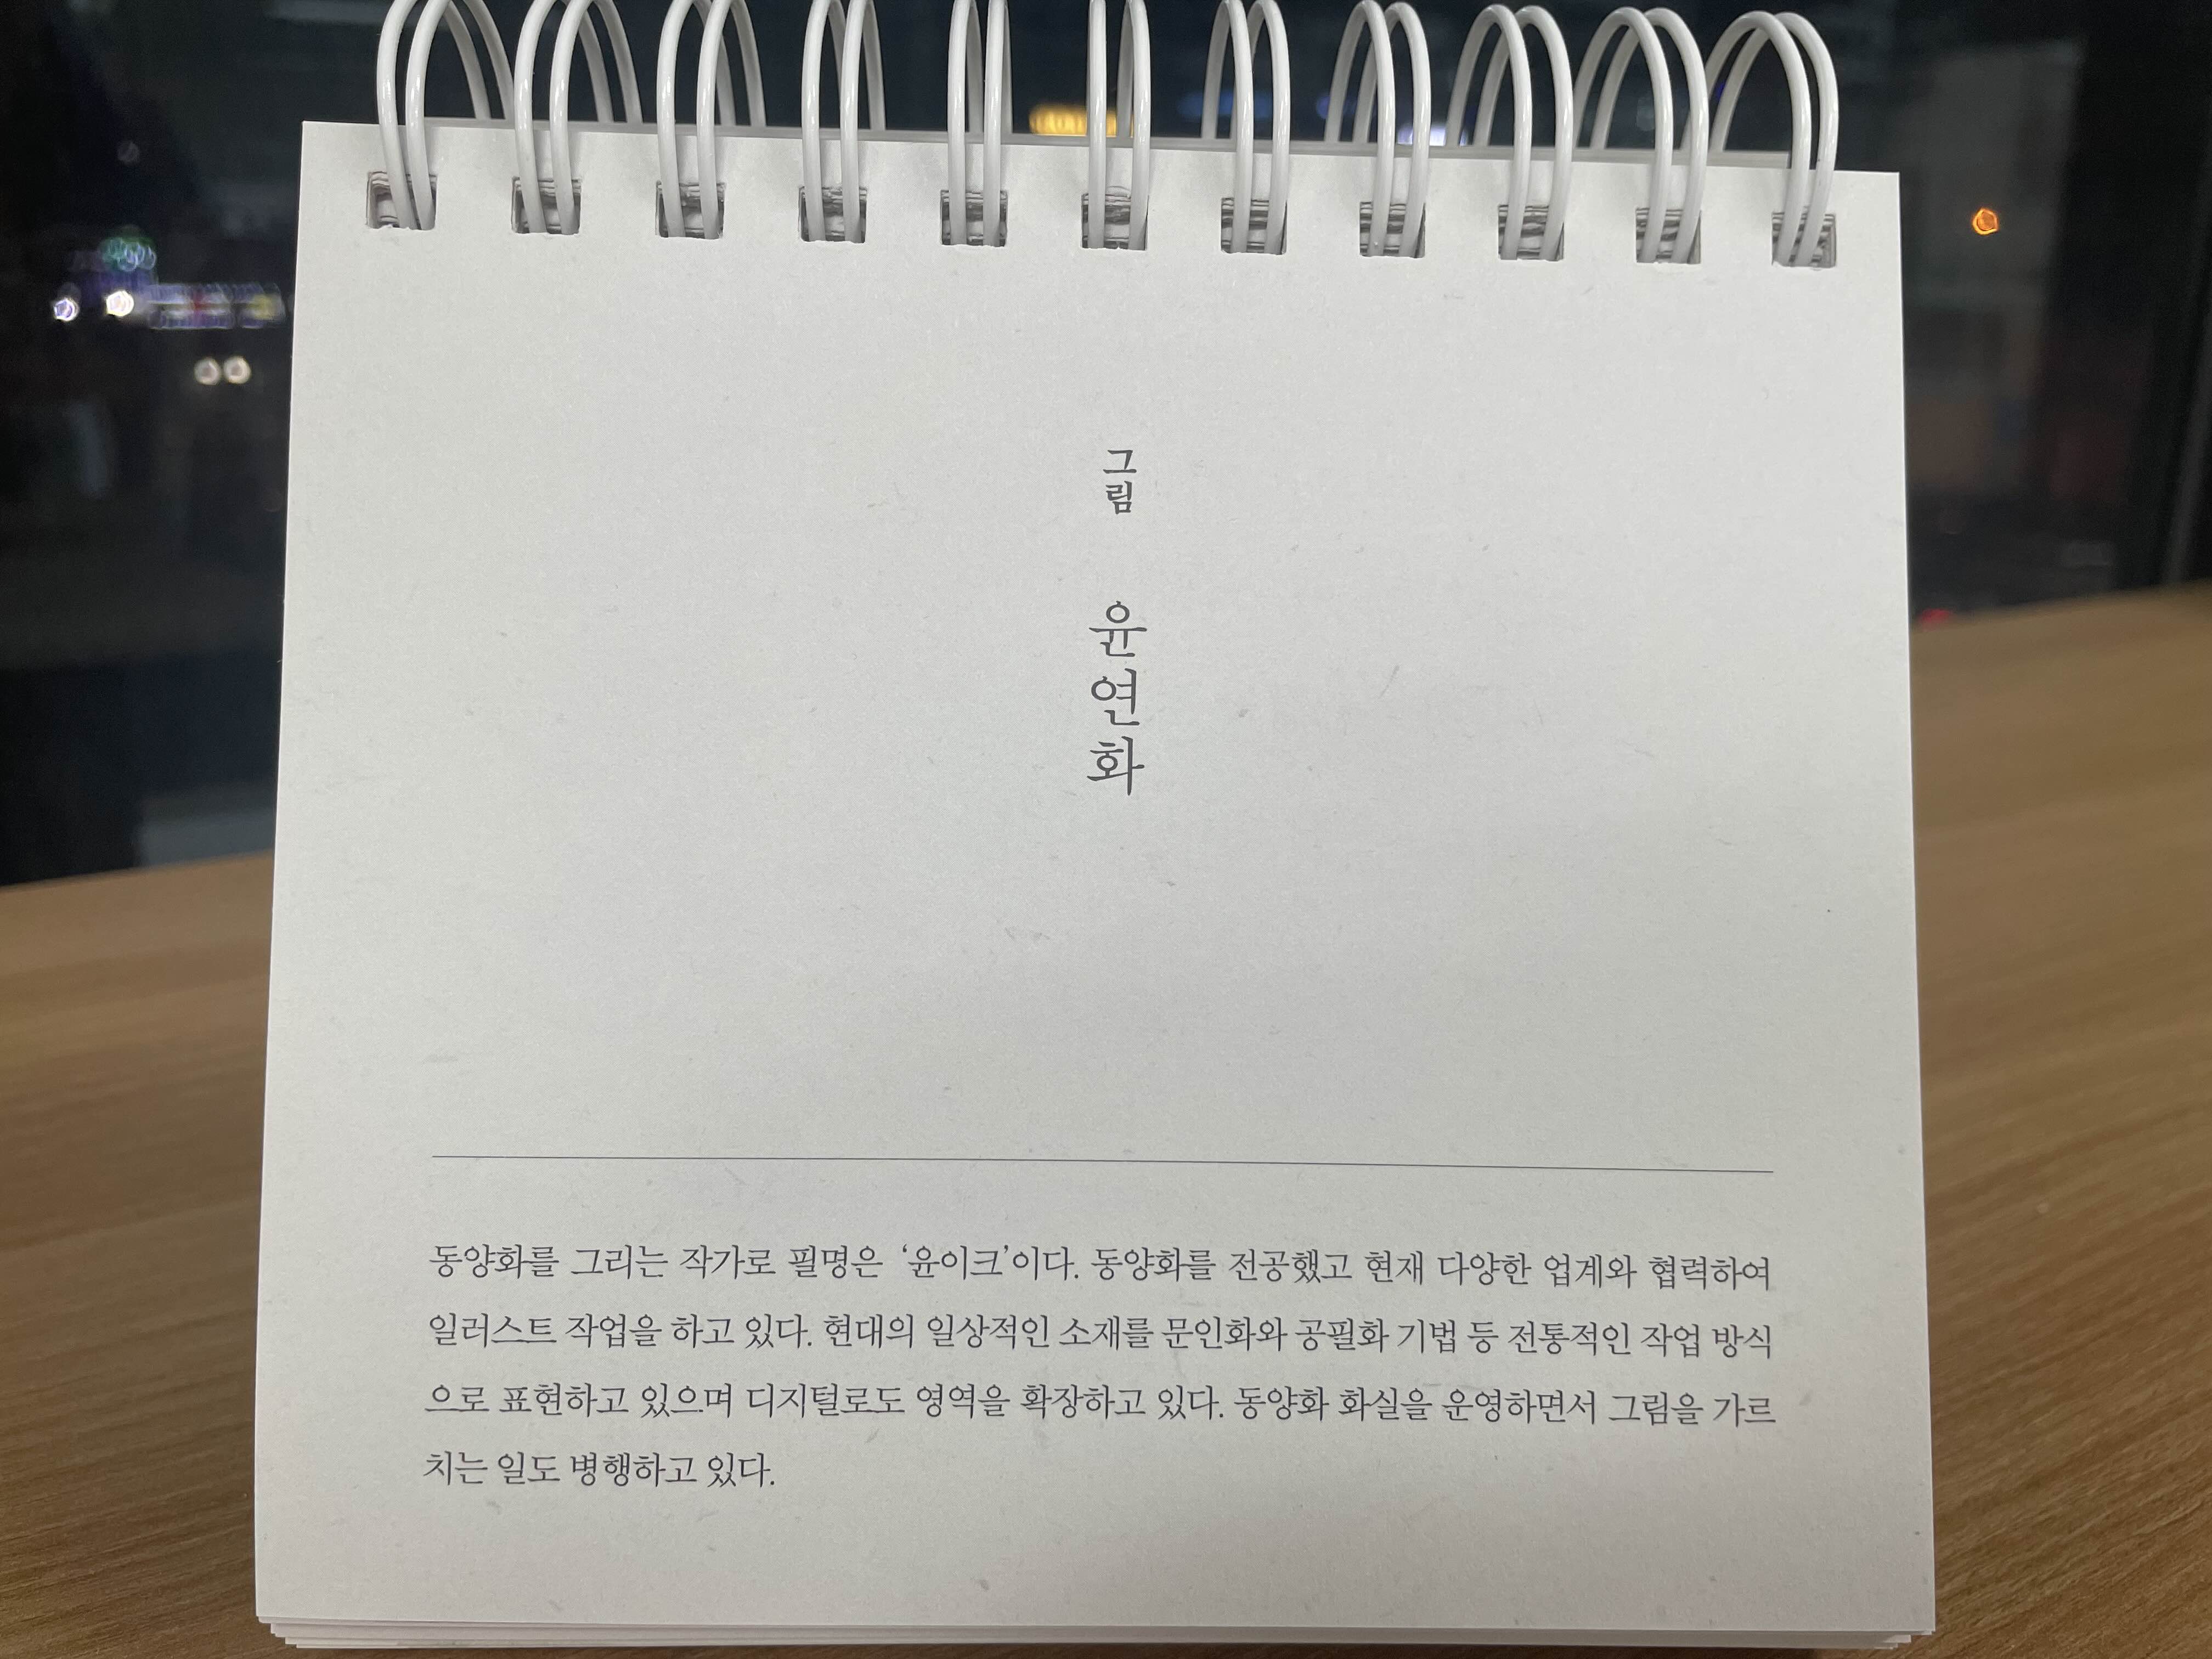 그림
윤연화
동양화를 그리는 작가로 필명은 ‘윤이크’이다. 동양화를 전공했고 현재 다양한 업계와 협력하여
일러스트 작업을 하고 있다. 현대의 일상적인 소재를 문인화와 공필화 기법 등 전통적인 작업 방식
으로 표현하고 있으며 디지털로도 영역을 확장하고 있다. 동양화 화실을 운영하면서 그림을 가르
치는 일도 병행하고 있다.